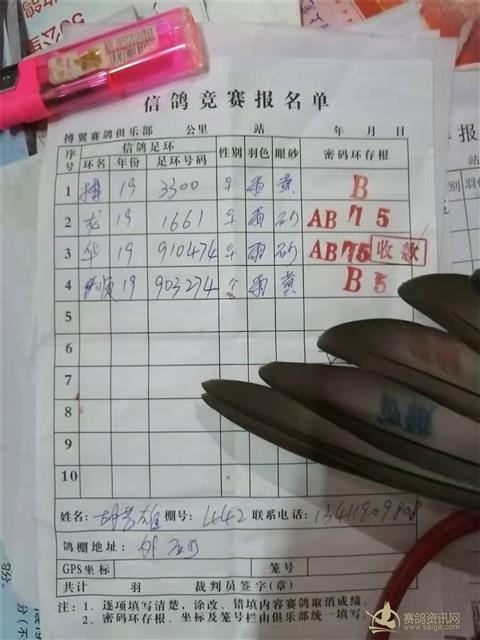 信鸽竞赛报名单
搏翼赛鸽俱乐部 公里 站 年 月 日
序号 信鸽足环 性别 羽色 眼砂 密码环存根
环名 年份 足环号码
1 搏 19 3300 ♀ 雨 黄 B
2 龙 19 1661 ♀ 雨 砂 AB75
3 华 19 910474 ♀ 雨 砂 AB75 收款
4 19 903274 雨 黄 B5
5
6
7
8
9
10
姓名: 棚号: 442 联系电话:
鸽棚地址:
GPS坐标 笼号
共计 羽 裁判员签字(章)
注:1、逐项填写清楚,涂改、错填内容赛鸽取消成绩。
2、密码环存根、坐标及笼号栏由俱乐部统一填写
赛鸽资讯网
www.saige